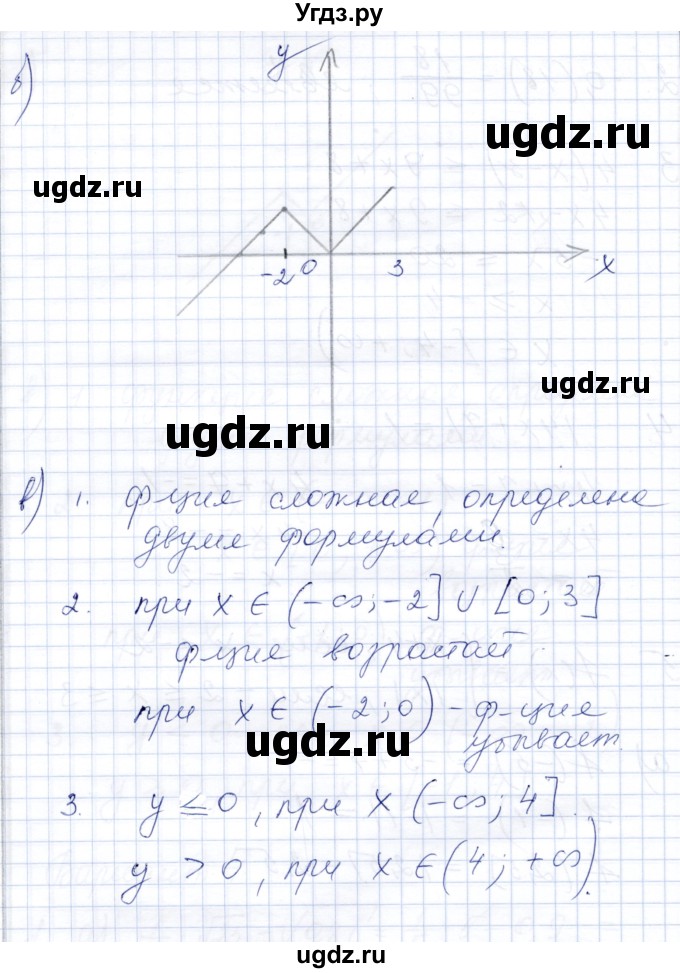 Угдз.ру
б)
y
ugdz.ru
ugdz.ru
-2 0 3 x
ugdz.ru
ugdz.ru
в) 1. ф-ция сложная, определена
двумя формулами.
2. при x ∈ (-∞; -2] ∪ [0; 3]
ф-ция возрастает.
при x ∈ (-2; 0) - ф-ция
убывает.
ugdz.ru
3. y ≤ 0, при x (-∞; 4].
y > 0, при x ∈ (4; +∞).
ugdz.ru
ugdz.ru